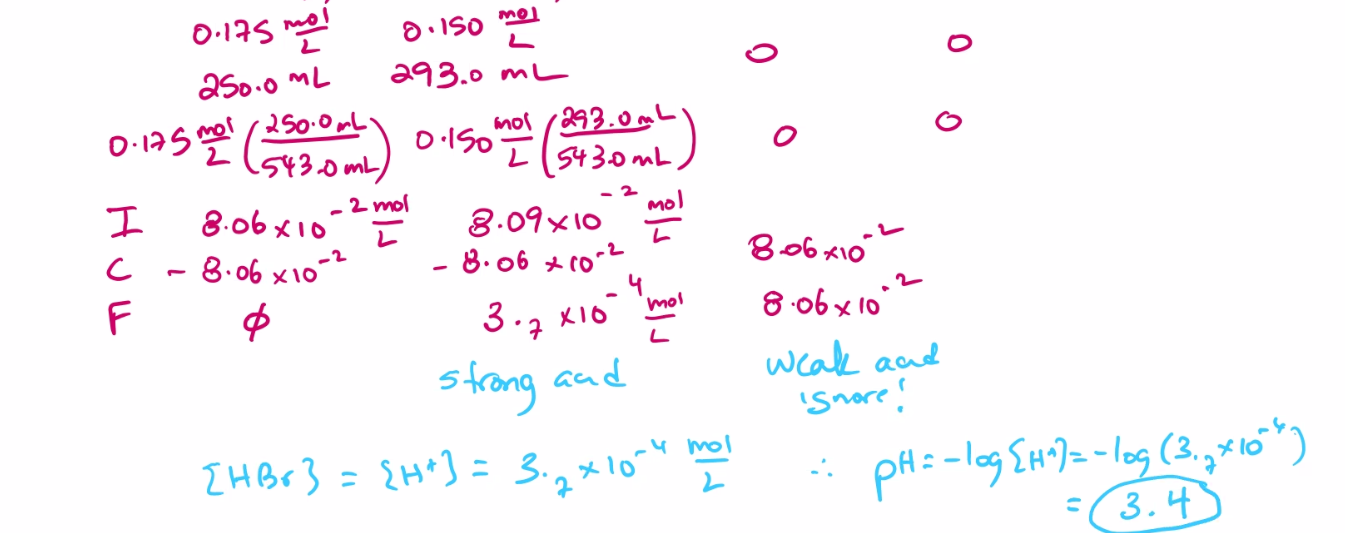 0.175 mol/L 0.150 mol/L 0 0
250.0 mL 293.0 mL
0.175 mol/L (250.0 mL/543.0 mL) 0.150 mol/L (293.0 mL/543.0 mL) 0 0
I 8.06 x 10⁻² mol/L 8.09 x 10⁻² mol/L
C - 8.06 x 10⁻² - 8.06 x 10⁻² 8.06 x 10⁻²
F ϕ 3.₇ x 10⁻⁴ mol/L 8.06 x 10⁻²
strong acid weak acid
ignore!
[HBr] = [H⁺] = 3.₇ x 10⁻⁴ mol/L ∴ pH = -log[H⁺] = -log (3.₇ x 10⁻⁴)
= 3.4